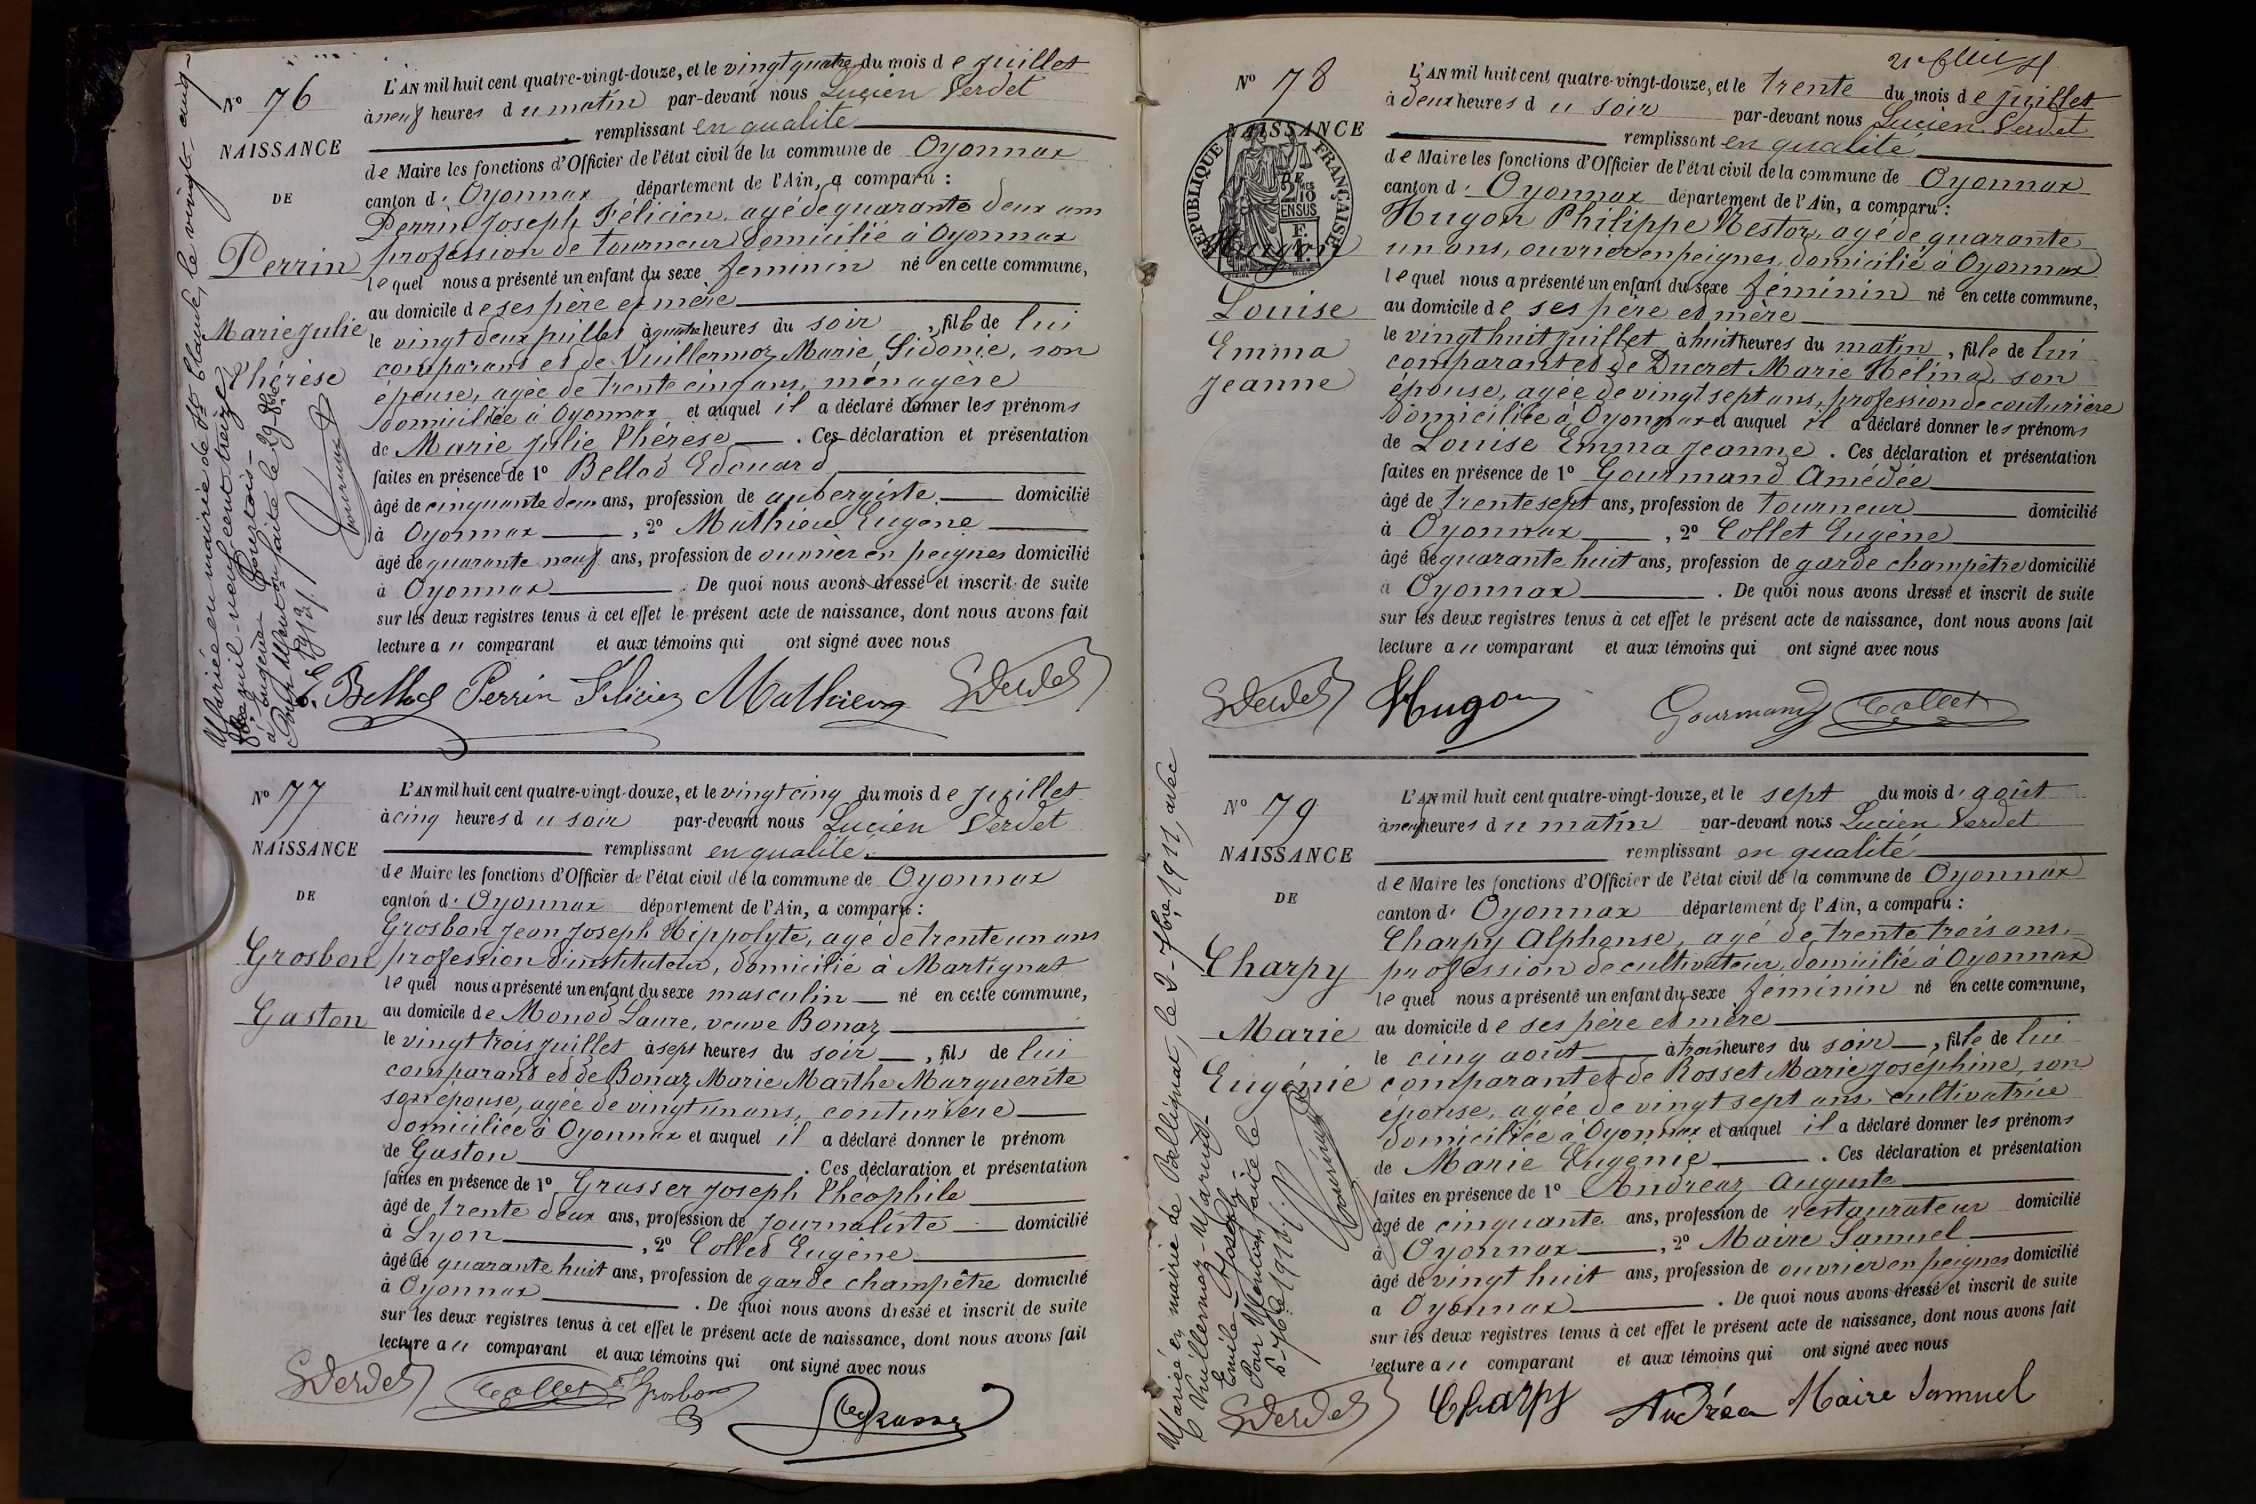 N° 76
NAISSANCE
DE
Perrin
Marie Julie
Thérèse
L'AN mil huit cent quatre-vingt-douze, et le vingt quatre du mois de juillet
à neuf heures du matin par-devant nous Lucien Verdet
remplissant en qualité
de Maire les fonctions d'Officier de l'état civil de la commune de Oyonnax
canton d'Oyonnax département de l'Ain, a comparu :
Perrin Joseph Félicien, agé de quarante deux ans
profession de tourneur domicilié à Oyonnax
lequel nous a présenté un enfant du sexe feminin né en cette commune,
au domicile de ses père et mère
le vingt deux juillet à quatre heures du soir, fille de lui
comparant et de Vuillermoz Marie Sidonie, son
épouse, agée de trente cinq ans, ménagère
domiciliée à Oyonnax et auquel il a déclaré donner les prénoms
de Marie Julie Thérèse. Ces déclaration et présentation
faites en présence de 1° Bellod Edouard
âgé de cinquante deux ans, profession de aubergiste domicilié
à Oyonnax, 2° Mathieu Eugène
âgé de quarante neuf ans, profession de ouvrier en peignes domicilié
à Oyonnax. De quoi nous avons dressé et inscrit de suite
sur les deux registres tenus à cet effet le présent acte de naissance, dont nous avons fait
lecture au comparant et aux témoins qui ont signé avec nous
E. Bellod Perrin Félicien Mathieu LVerdet
Mariée en mairie de St Claude, le vingt-cinq
mil neuf cent treize
à Eugène
Pour Mention faite le 29
N° 77
NAISSANCE
DE
Grosbon
Gaston
L'AN mil huit cent quatre-vingt-douze, et le vingt cinq du mois de juillet
à cinq heures du soir par-devant nous Lucien Verdet
remplissant en qualité
de Maire les fonctions d'Officier de l'état civil de la commune de Oyonnax
canton d'Oyonnax département de l'Ain, a comparu :
Grosbon Jean Joseph Hippolyte, agé de trente un ans
profession d'instituteur, domicilié à Martignat
lequel nous a présenté un enfant du sexe masculin né en cette commune,
au domicile de Monod Laure, veuve Bonaz
le vingt trois juillet à sept heures du soir, fils de lui
comparant et de Bonaz Marie Marthe Marguerite
son épouse, agée de vingt un ans, couturière
domiciliée à Oyonnax et auquel il a déclaré donner le prénom
de Gaston. Ces déclaration et présentation
faites en présence de 1° Grasser Joseph Théophile
âgé de trente deux ans, profession de journaliste domicilié
à Lyon, 2° Collet Eugène
âgé de quarante huit ans, profession de garde champêtre domicilié
à Oyonnax. De quoi nous avons dressé et inscrit de suite
sur les deux registres tenus à cet effet le présent acte de naissance, dont nous avons fait
lecture au comparant et aux témoins qui ont signé avec nous
LVerdet Collet Grosbon Grasser
N° 78
NAISSANCE
REPUBLIQUE FRANÇAISE
DE
2/10 EN SUS
Hugon
Louise
Emma
Jeanne
L'AN mil huit cent quatre-vingt-douze, et le trente du mois de juillet
à deux heures du soir par-devant nous Lucien Verdet
remplissant en qualité
de Maire les fonctions d'Officier de l'état civil de la commune de Oyonnax
canton d'Oyonnax département de l'Ain, a comparu :
Hugon Philippe Nestor, agé de quarante
un ans, ouvrier en peignes, domicilié à Oyonnax
lequel nous a présenté un enfant du sexe féminin né en cette commune,
au domicile de ses père et mère
le vingt huit juillet à huit heures du matin, fille de lui
comparant et de Ducret Marie Hélina, son
épouse, agée de vingt sept ans, profession de couturière
domiciliée à Oyonnax et auquel il a déclaré donner les prénoms
de Louise Emma Jeanne. Ces déclaration et présentation
faites en présence de 1° Gourmand Amédée
âgé de trente sept ans, profession de tourneur domicilié
à Oyonnax, 2° Collet Eugène
âgé de quarante huit ans, profession de garde champêtre domicilié
à Oyonnax. De quoi nous avons dressé et inscrit de suite
sur les deux registres tenus à cet effet le présent acte de naissance, dont nous avons fait
lecture au comparant et aux témoins qui ont signé avec nous
LVerdet Hugon Gourmand Collet
N° 79
NAISSANCE
DE
Charpy
Marie
Eugénie
L'AN mil huit cent quatre-vingt-douze, et le sept du mois d'août
à neuf heures du matin par-devant nous Lucien Verdet
remplissant en qualité
de Maire les fonctions d'Officier de l'état civil de la commune de Oyonnax
canton d'Oyonnax département de l'Ain, a comparu :
Charpy Alphonse, agé de trente trois ans,
profession de cultivateur, domicilié à Oyonnax
lequel nous a présenté un enfant du sexe féminin né en cette commune,
au domicile de ses père et mère
le cinq août à trois heures du soir, fille de lui
comparant et de Rosset Marie Joséphine, son
épouse, agée de vingt sept ans, cultivatrice
domiciliée à Oyonnax et auquel il a déclaré donner les prénoms
de Marie Eugénie. Ces déclaration et présentation
faites en présence de 1° Andréaz Auguste
âgé de cinquante ans, profession de restaurateur domicilié
à Oyonnax, 2° Maire Samuel
âgé de vingt huit ans, profession de ouvrier en peignes domicilié
à Oyonnax. De quoi nous avons dressé et inscrit de suite
sur les deux registres tenus à cet effet le présent acte de naissance, dont nous avons fait
lecture au comparant et aux témoins qui ont signé avec nous
LVerdet Charpy Andréa Maire Samuel
Mariée en mairie de Bellignat, le 2-7bre 1911, avec
Vuillermoz-Marius-
Emile-Joseph
Pour Mention faite le
6-7bre 1911